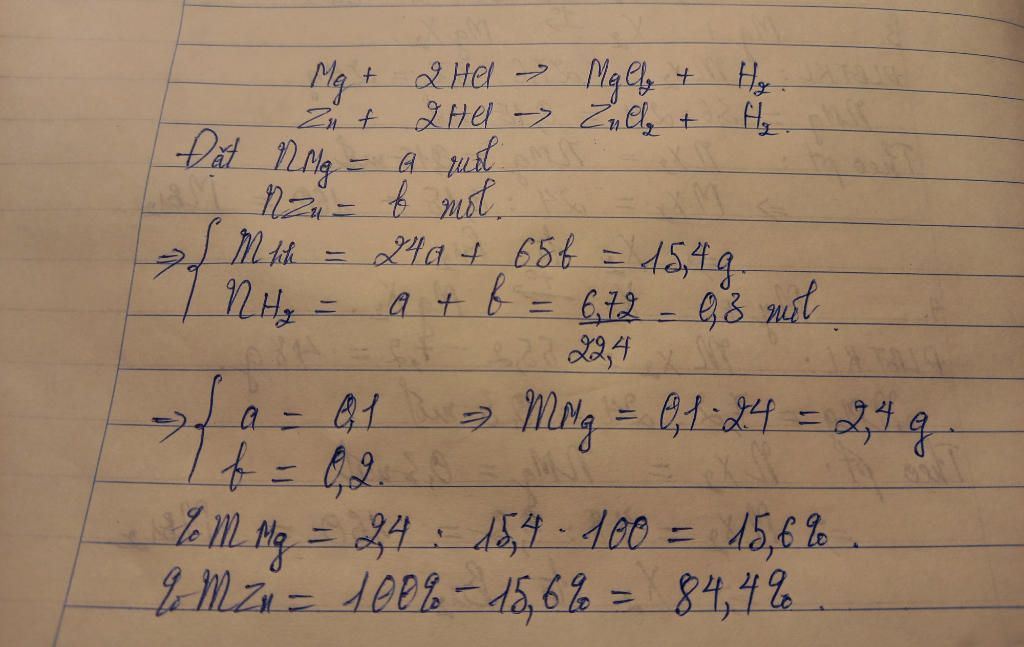 Mg + 2HCl → MgCl₂ + H₂.
Zn + 2HCl → ZnCl₂ + H₂.
Đặt nMg = a mol
nZn = b mol.
⇒ { mhh = 24a + 65b = 15,4g.
nH₂ = a + b = 6,72/22,4 = 0,3 mol.
⇒ { a = 0,1 ⇒ mMg = 0,1·24 = 2,4g.
b = 0,2.
%mMg = 2,4 : 15,4 · 100 = 15,6%.
%mZn = 100% - 15,6% = 84,4%.